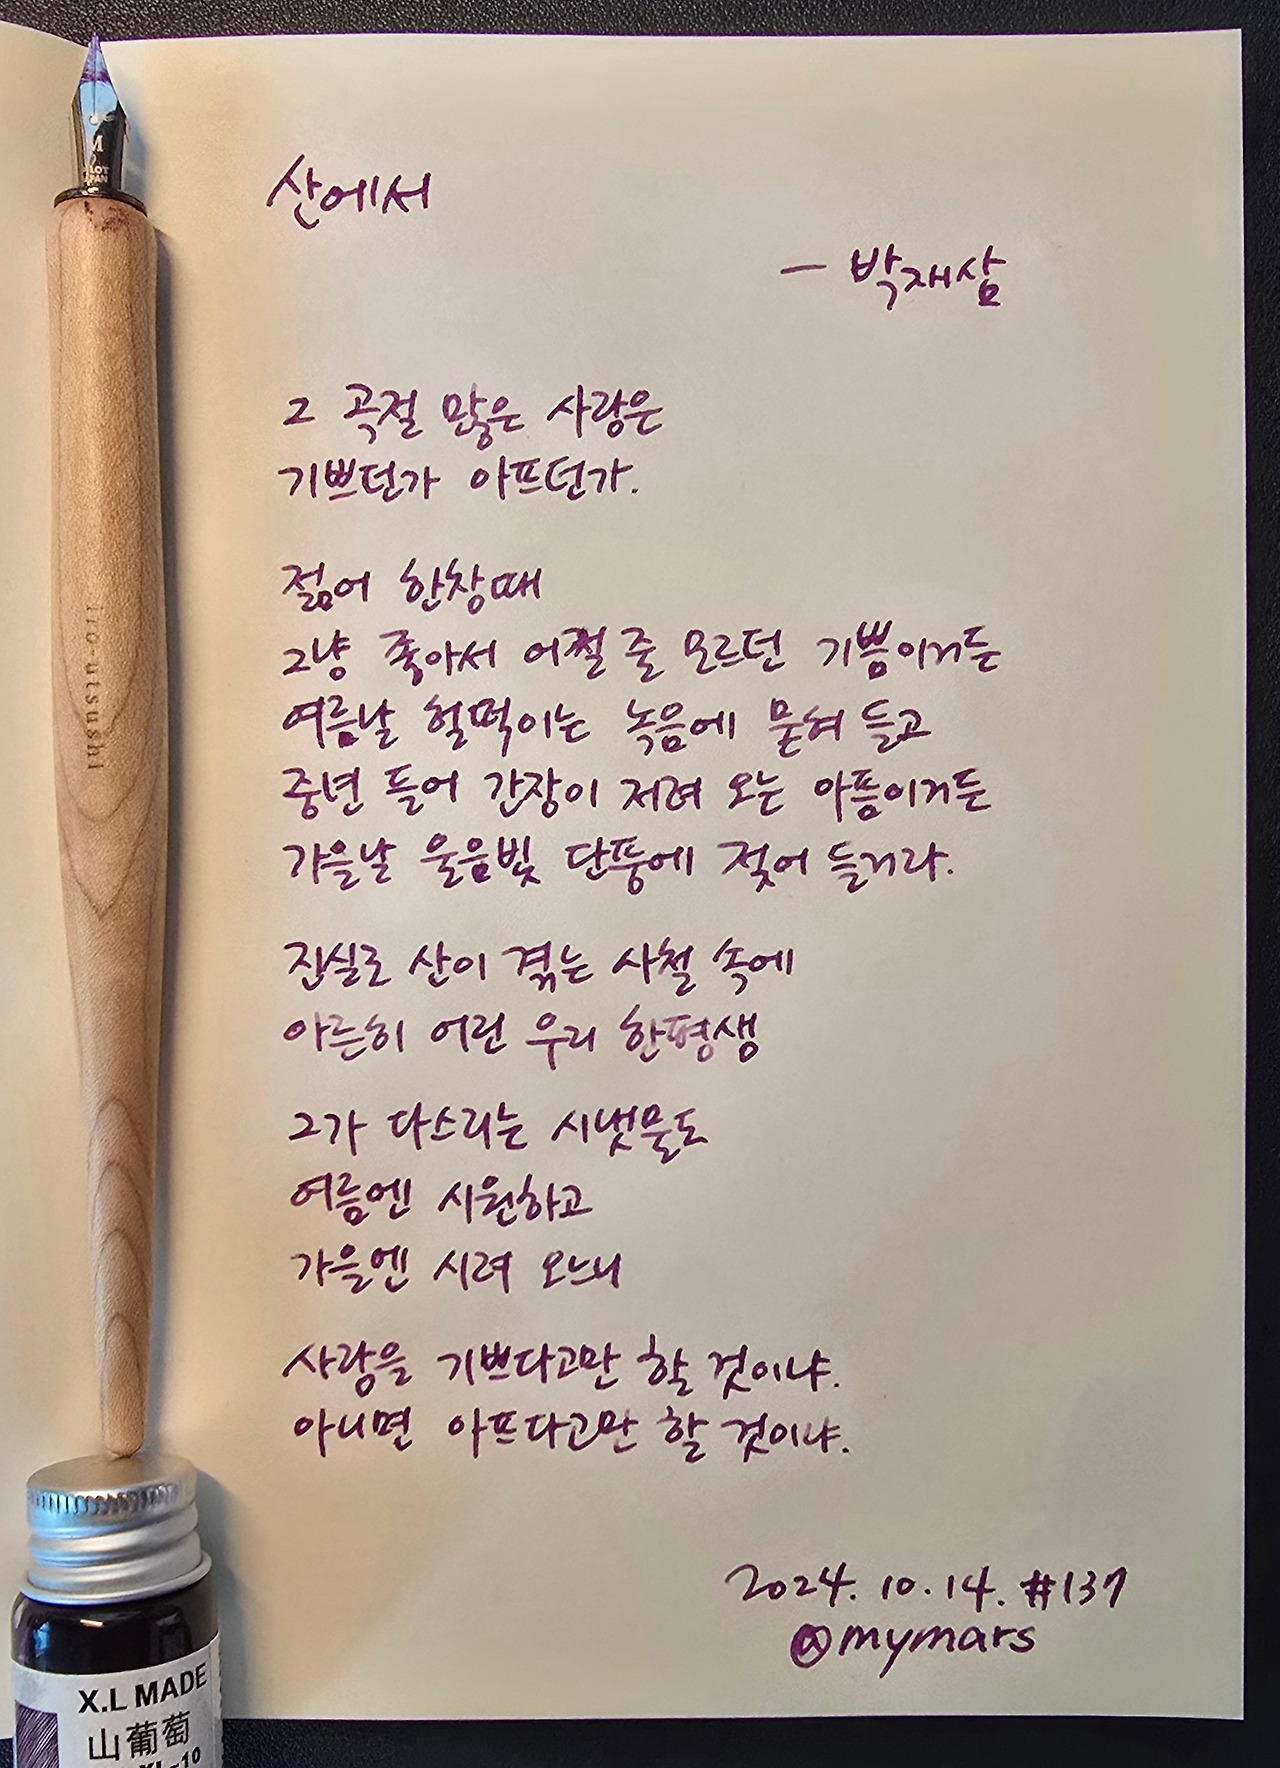 산에서
- 박재삼
그 곡절 많은 사랑은
기쁘던가 아프던가.
젊어 한창때
그냥 좋아서 어쩔 줄 모르던 기쁨이거든
여름날 헐떡이는 녹음에 묻혀 들고
중년 들어 간장이 저려 오는 아픔이거든
가을날 울음빛 단풍에 젖어 들거라.
진실로 산이 겪는 사철 속에
아른히 어린 우리 한평생
그가 다스리는 시냇물도
여름엔 시원하고
가을엔 시려 오느니
사랑을 기쁘다고만 할 것이냐.
아니면 아프다고만 할 것이냐.
2024. 10. 14. #137
@mymars
M
iro-utsushi
X.L MADE
山葡萄
XL-10